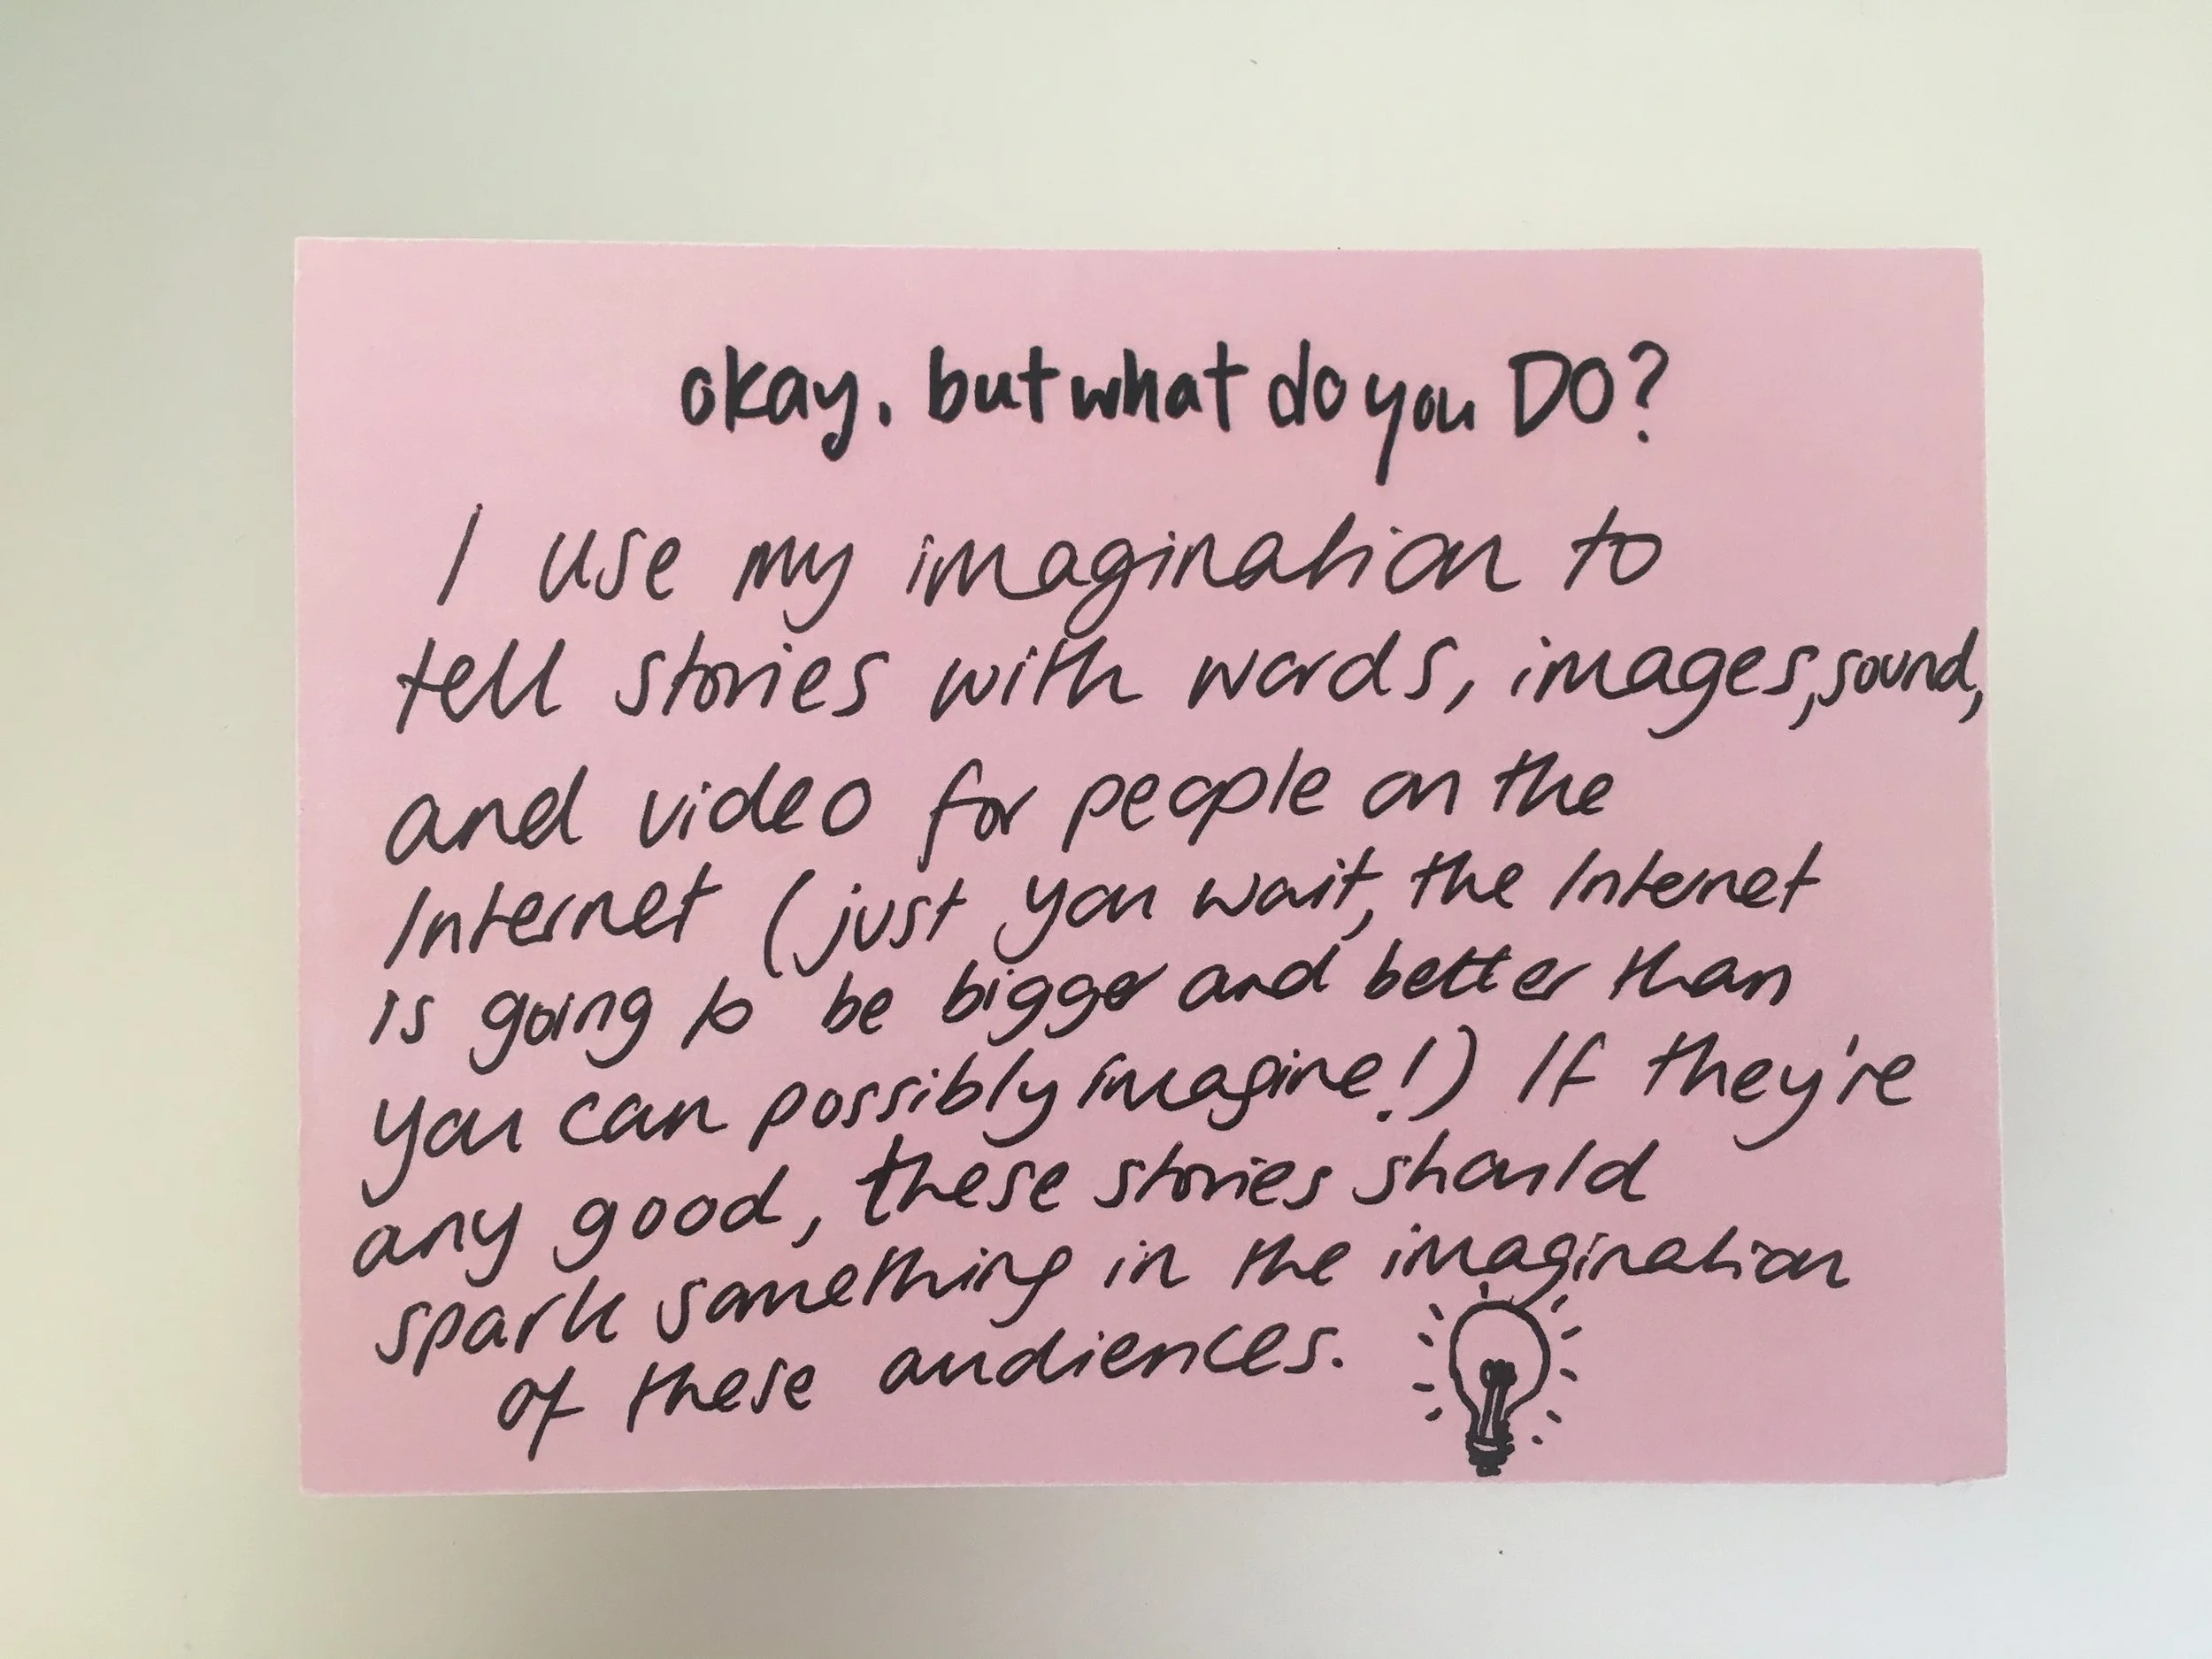 okay, but what do you DO?
I use my imagination to
tell stories with words, images, sound,
and video for people on the
Internet (just you wait, the Internet
is going to be bigger and better than
you can possibly imagine!) If they're
any good, these stories should
spark something in the imagination
of these audiences.